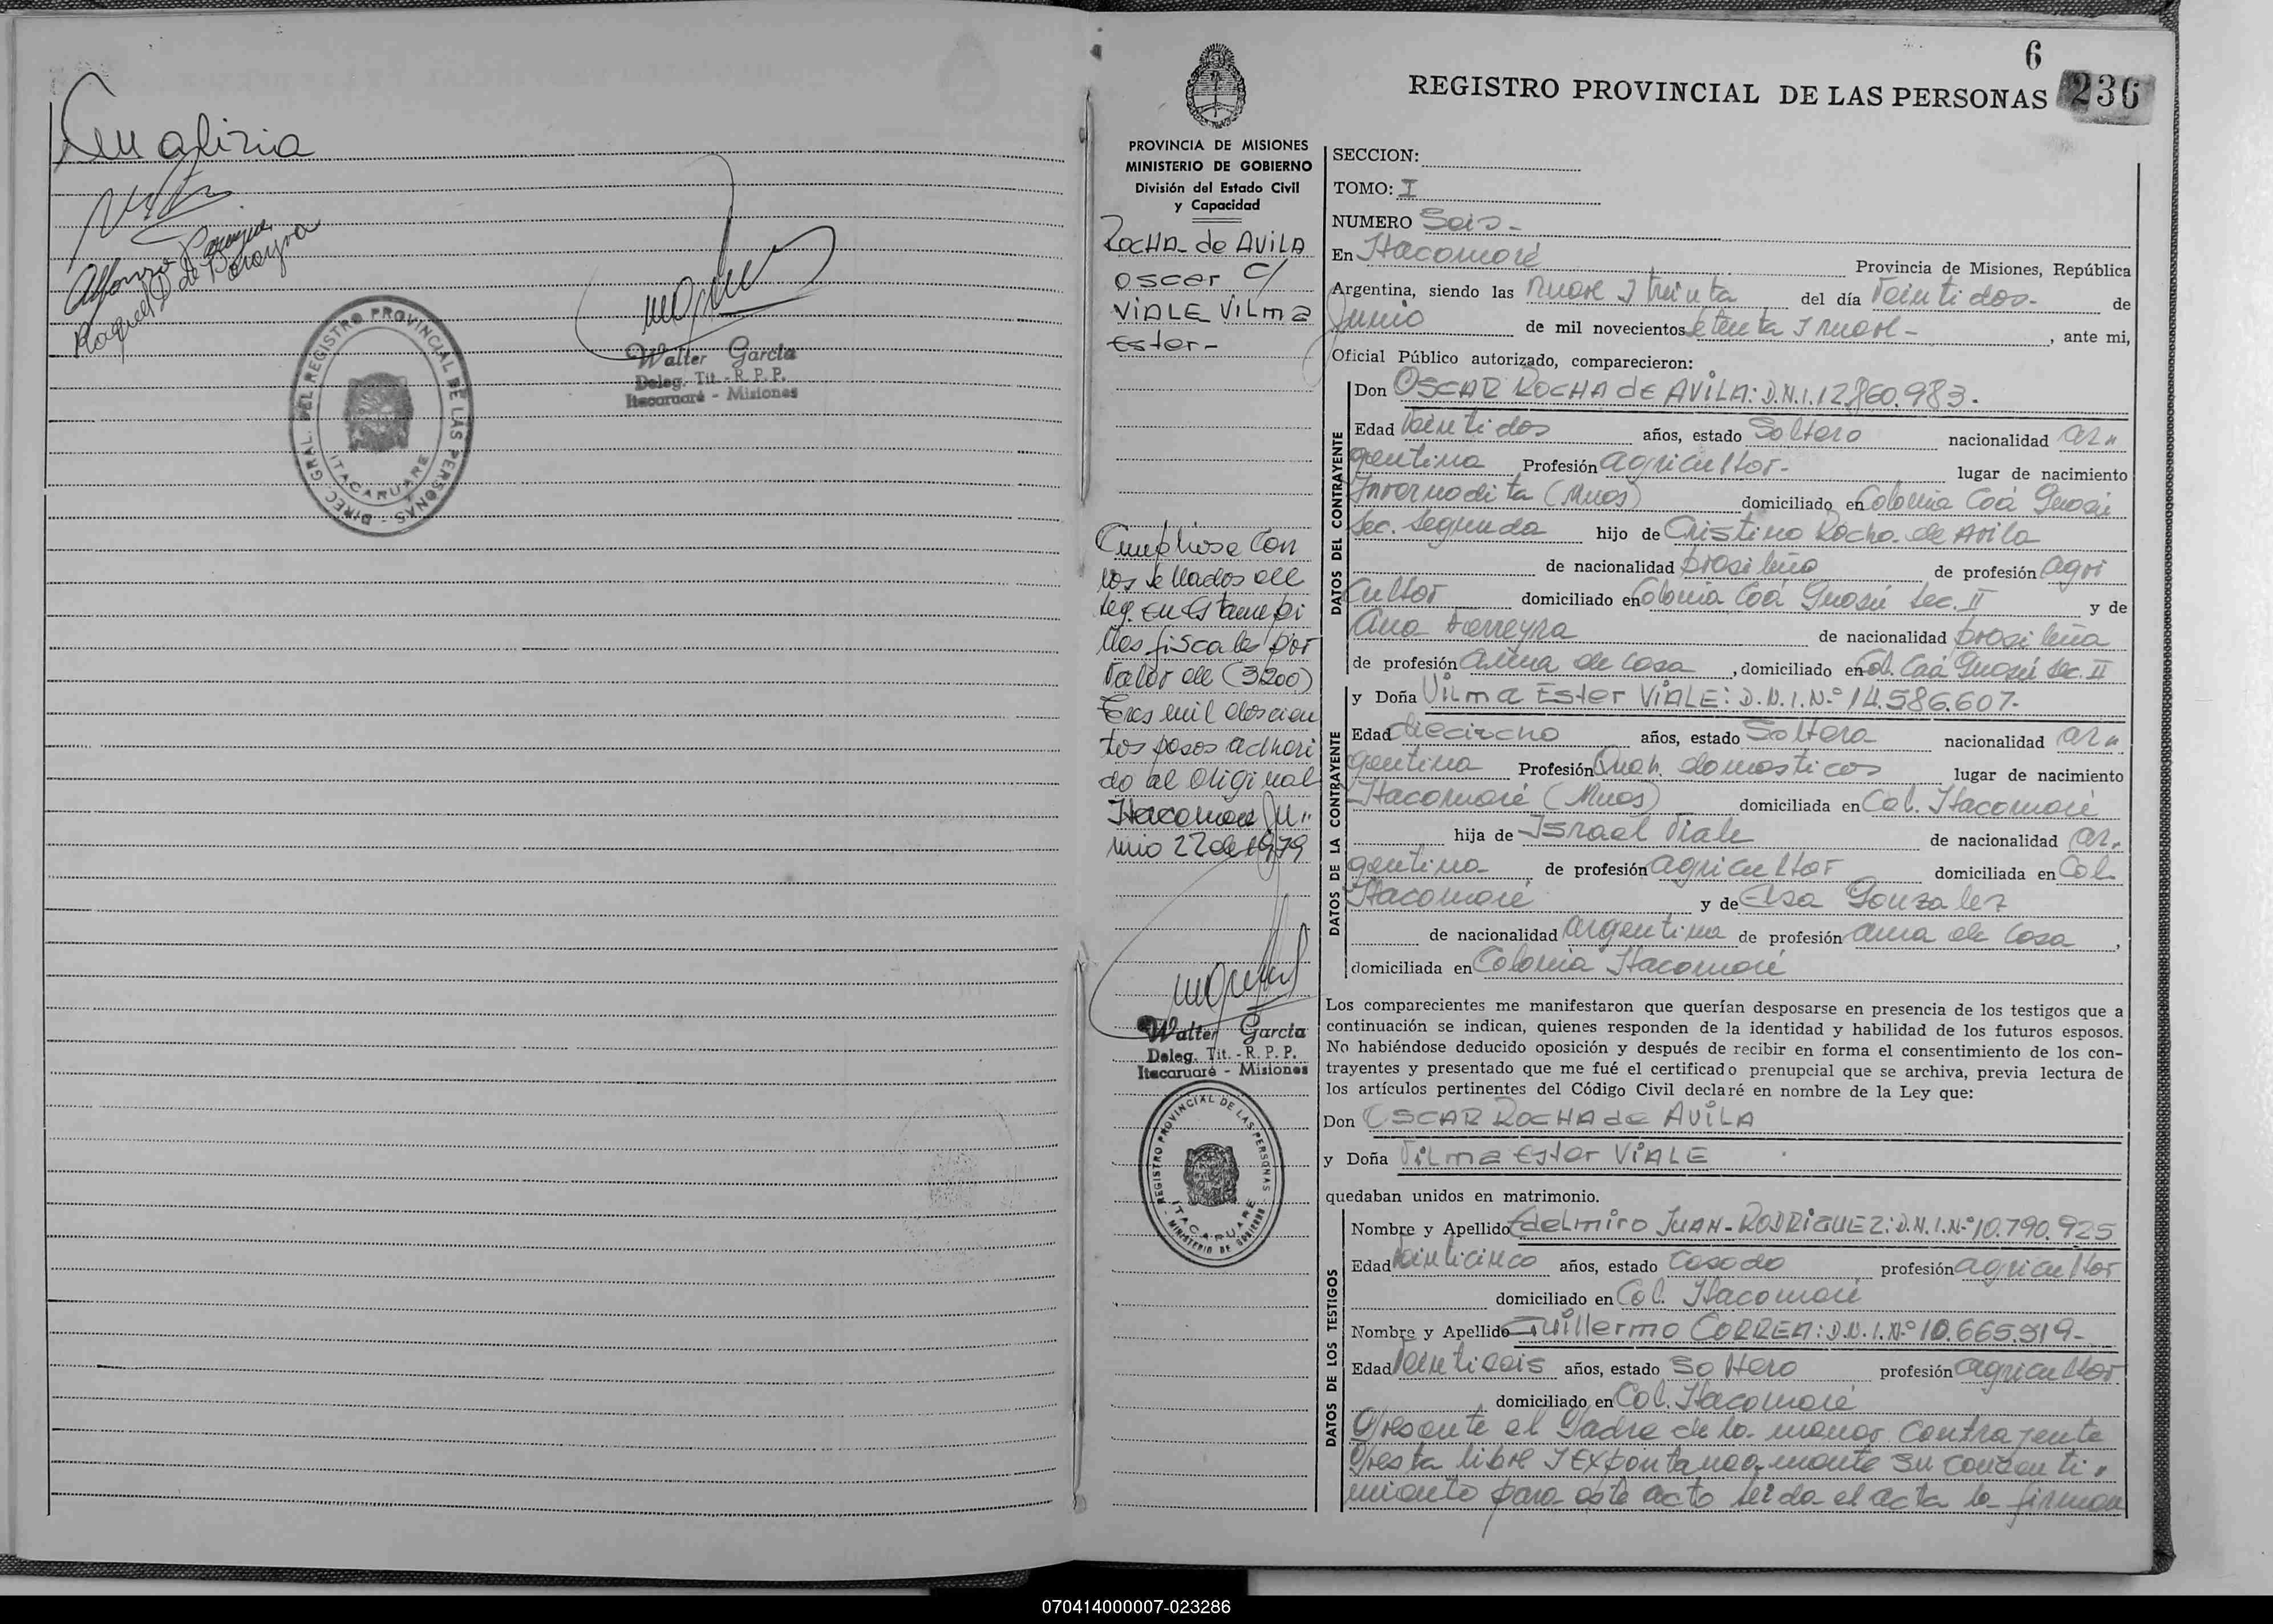 Alfonso Pereyra
Raquel D de Pereyra
DIREC. GRAL. DEL REGISTRO PROVINCIAL DE LAS PERSONAS -
ITACARUARE
Walter García
Deleg. Tit. - R. P. P.
Itacaruaré - Misiones
6
REGISTRO PROVINCIAL DE LAS PERSONAS 236
PROVINCIA DE MISIONES
MINISTERIO DE GOBIERNO
División del Estado Civil
y Capacidad
ROCHA de AVILA
oscar c/
VIALE Vilma
Ester-
Cumpliose con
los sellados de
ley. en Estampi
llas fiscales por
valor de (3200)
Tres mil doscien
tos pesos adheri
do al original
Itacaruare Ju"
nio 22 de 1979
Walter García
Deleg. Tit. - R. P. P.
Itacaruaré - Misiones
REGISTRO PROVINCIAL DE LAS PERSONAS
ITACARUARE
- MINISTERIO DE GOBIERNO
SECCION:
TOMO: I
NUMERO Seis-
En Itacaruaré Provincia de Misiones, República
Argentina, siendo las nueve y treinta del día Veintidos- de
Junio de mil novecientos setenta y nueve- , ante mi,
Oficial Público autorizado, comparecieron:
DATOS DEL CONTRAYENTE
Don OSCAR ROCHA de AVILA: D.N.I. 12.860.983.
Edad Veintidos años, estado Soltero nacionalidad ar"
gentina Profesión agricultor- lugar de nacimiento
(Mnes) domiciliado en Colonia Caá Guazú
Sec. Segunda hijo de Cristino Rocha de Avila
de nacionalidad brasileño de profesión agri
cultor domiciliado en Colonia Caá Guazú Sec. II y de
Ana Ferreyra de nacionalidad brasileña
de profesión ama de casa , domiciliado en Col. Caá Guazú Sec. II
DATOS DE LA CONTRAYENTE
y Doña Vilma Ester VIALE: D.N.I.N.º 14.586.607.
Edad dieciocho años, estado Soltera nacionalidad ar"
gentina Profesión Queh. domesticos lugar de nacimiento
Itacaruaré (Mnes) domiciliada en Col. Itacaruaré
hija de Israel Viale de nacionalidad ar.
gentina de profesión agricultor domiciliada en Col.
Itacaruaré y de Elsa Gonzalez
de nacionalidad argentina de profesión ama de casa ,
domiciliada en Colonia Itacaruaré
Los comparecientes me manifestaron que querían desposarse en presencia de los testigos que a
continuación se indican, quienes responden de la identidad y habilidad de los futuros esposos.
No habiéndose deducido oposición y después de recibir en forma el consentimiento de los con-
trayentes y presentado que me fué el certificado prenupcial que se archiva, previa lectura de
los artículos pertinentes del Código Civil declaré en nombre de la Ley que:
Don OSCAR ROCHA de AVILA
y Doña Vilma Ester VIALE
quedaban unidos en matrimonio.
DATOS DE LOS TESTIGOS
Nombre y Apellido Edelmiro JUAN- RODRIGUEZ: D.N.I.N.º 10.790.925
Edad Veinticinco años, estado Casado profesión agricultor
domiciliado en Col. Itacaruaré
Nombre y Apellido Guillermo CORREA: D.N.I.N.º 10.665.919-
Edad Veintiseis años, estado Soltero profesión agricultor
domiciliado en Col. Itacaruaré
Presente el Padre de la menor Contrayente
Presta libre y Expontaneamente su consenti"
miento para este acto leida el acta la firman
070414000007-023286